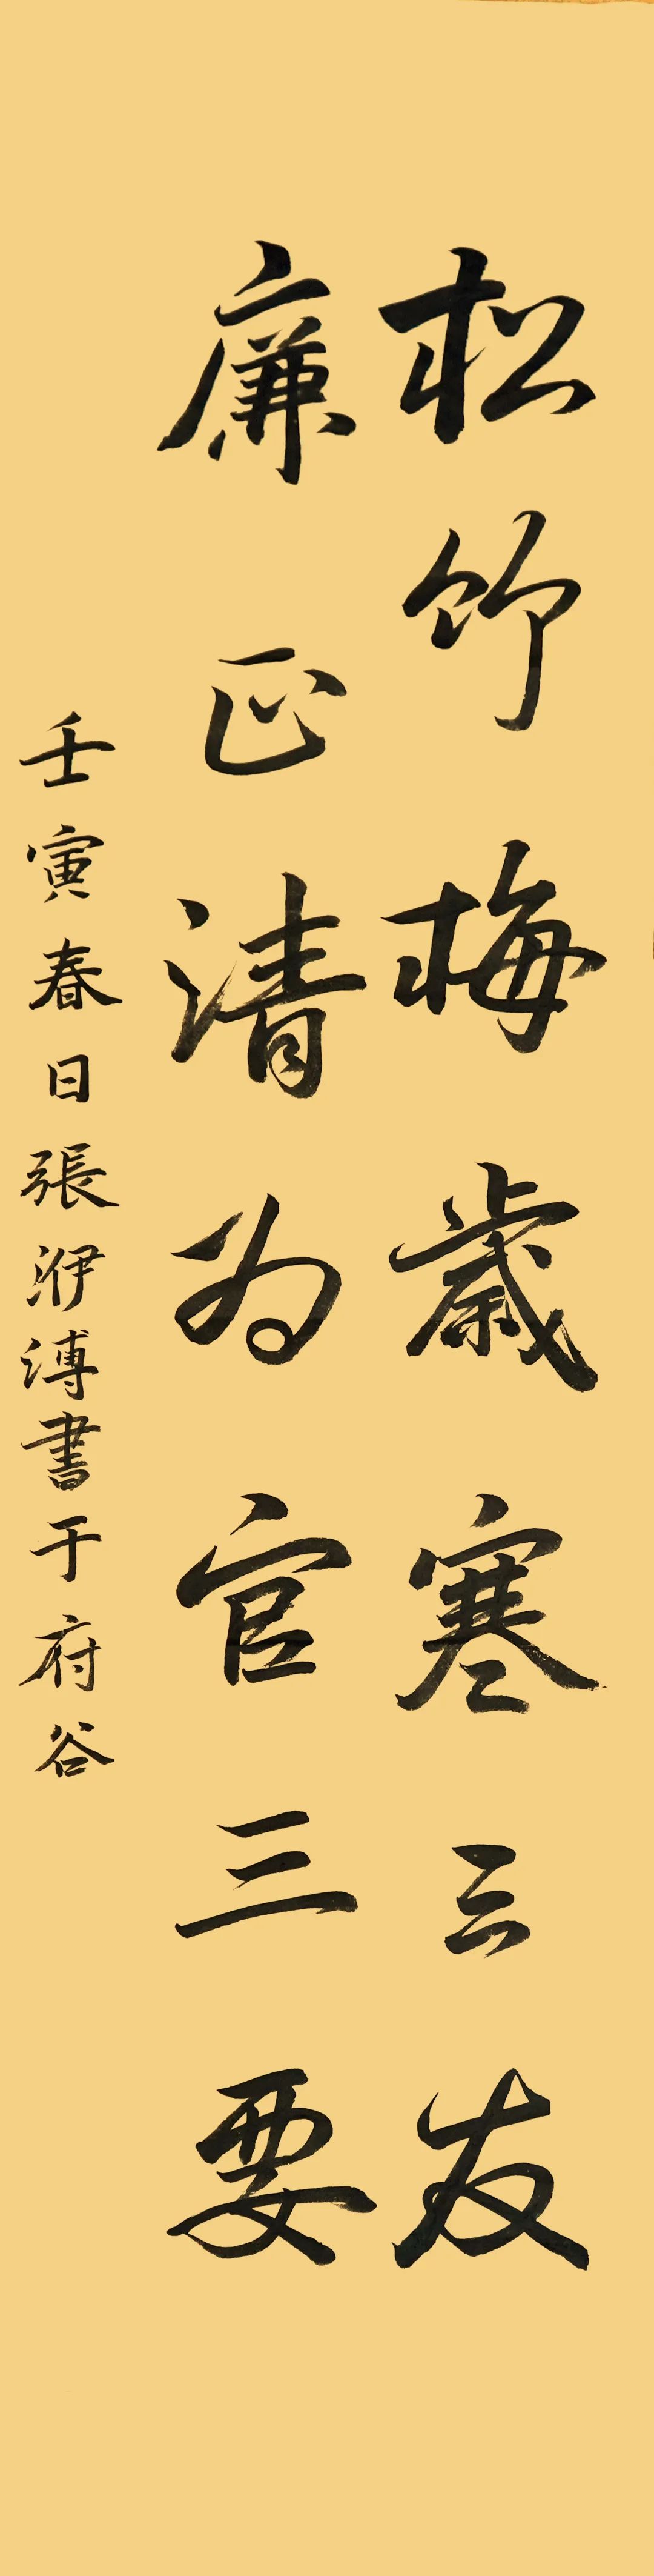 松竹梅歲寒三友
廉正清为官三要
壬寅春日張洢溥書于府谷